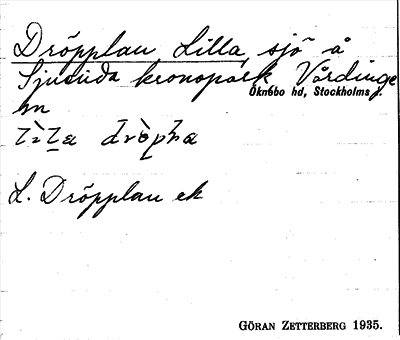 Dröpplan, Lilla, sjö å
Sjunda kronopark Vårdinge
Öknebo hd, Stockholms l.
sn
L. Dröpplan ek
GÖRAN ZETTERBERG 1935.